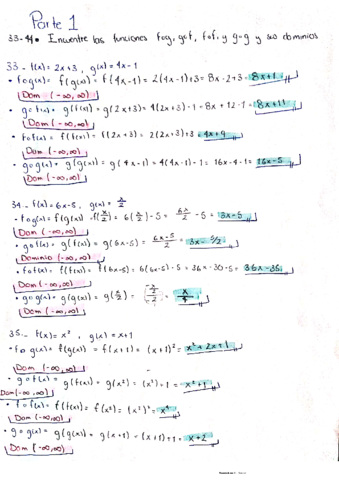 Parte 1
33-44. Encuentre las funciones fog, gof, fof, y g-g y sus dominios
33- f(x)= 2x+3, g(x)= 4x-1
• fog(x)= f(g(x)) = f(4x-1) = 2(4x-1)+3 = 8x-2+3 = 8x+1
Dom (-∞,∞)
• gof(x)= g(f(x)) = g(2x+3) = 4(2x+3)-1 = 8x+12-1 = 8x+11
Dom (-∞,∞)
• fof(x)= f(f(x)) = f(2x+3) = 2(2x+3)+3 = 4x+9
Dom (-∞,∞)
• gog(x)= g(g(x)) = g(4x-1) = 4(4x-1)-1 = 16x-4-1 = 16x-5
Dom (-∞,∞)
34.- f(x)= 6x-5, g(x)= x/2
• fog(x)= f(g(x)) = f(x/2) = 6(x/2)-5 = 6x/2 - 5 = 3x-5
Dom (-∞,∞)
• gof(x)= g(f(x)) = g(6x-5) = 6x-5/2 = 3x-5/2
Dominio (-∞,∞)
• fof(x)= f(f(x)) = f(6x-5) = 6(6x-5)-5 = 36x-30-5 = 36x-35
Dom (-∞,∞)
• gog(x)= g(g(x)) = g(x/2) = x/2/2 = x/4
Dom (-∞,∞)
35.- f(x)= x², g(x)= x+1
• fog(x)= f(g(x)) = f(x+1) = (x+1)² = x²+2x+1
Dom (-∞,∞)
• gof(x)= g(f(x)) = g(x²) = (x²)+1 = x²+1
Dom (-∞,∞)
• fof(x)= f(f(x)) = f(x²) = (x²)² = x⁴
Dom (-∞,∞)
• gog(x)= g(g(x)) = g(x+1) = (x+1)+1 = x+2
Dom (-∞,∞)